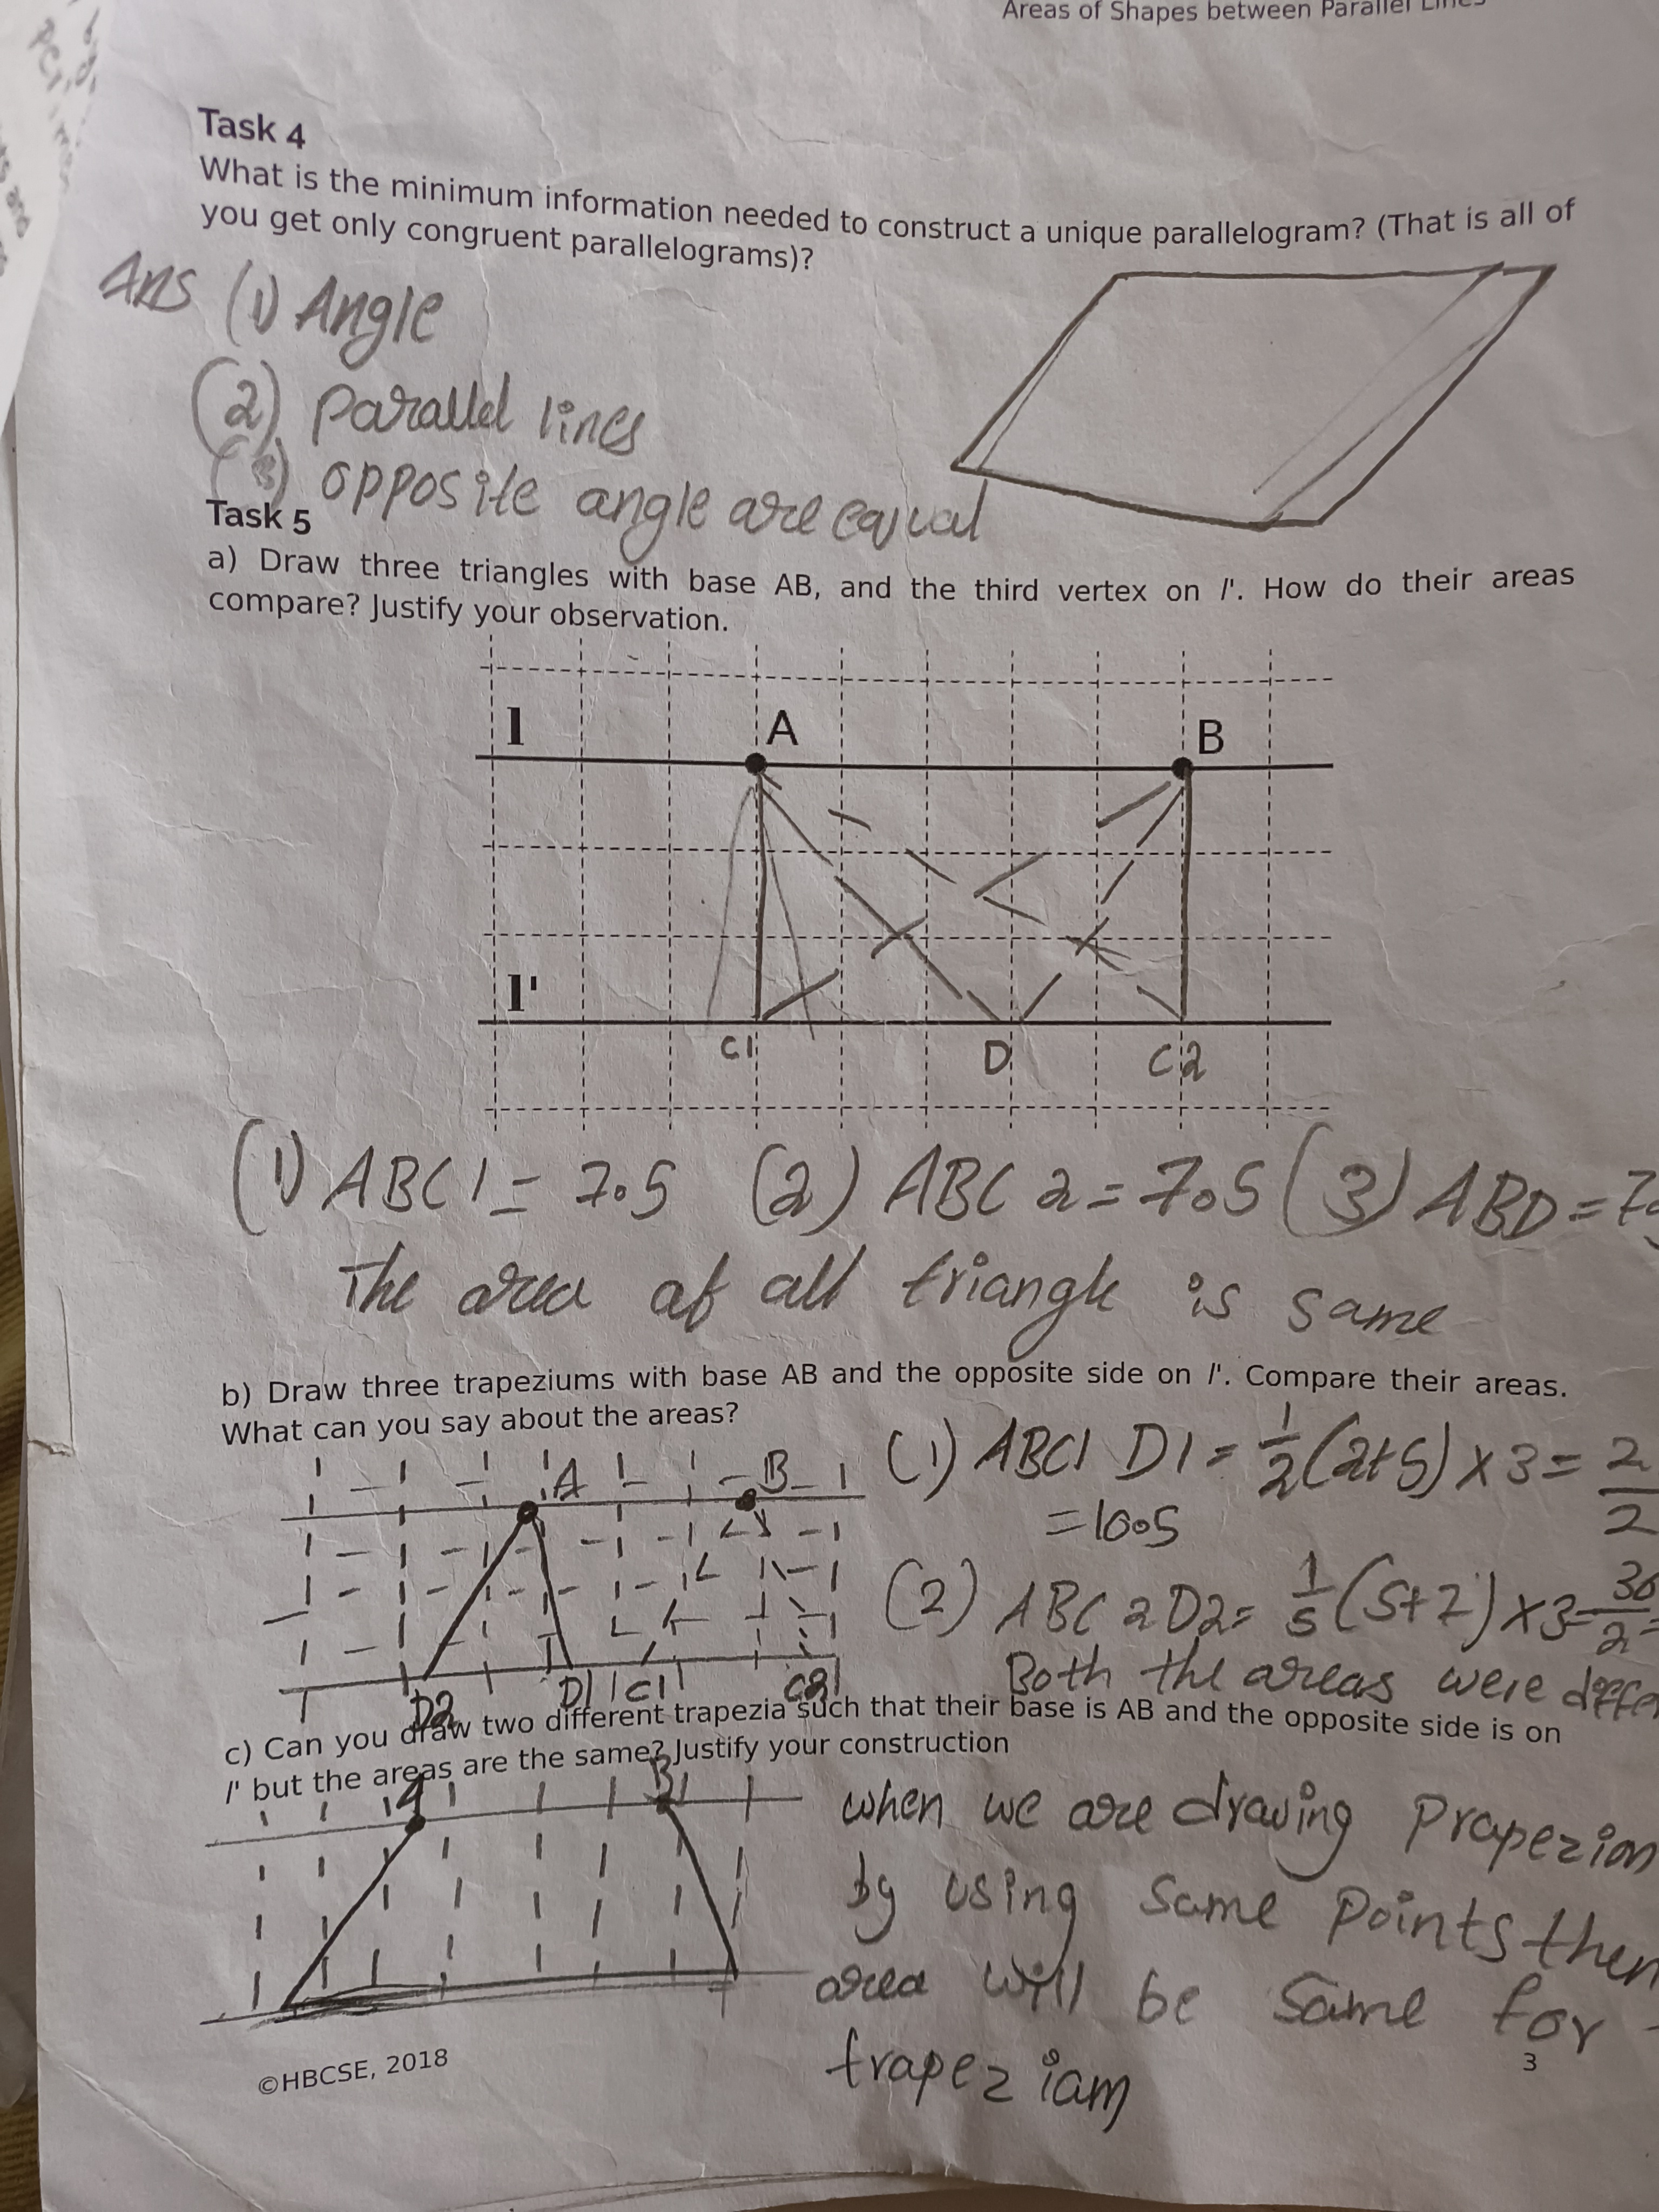 Areas of Shapes between Parallel Lines
Task 4
What is the minimum information needed to construct a unique parallelogram? (That is all of
you get only congruent parallelograms)?
Ans (1) Angle
(2) Parallel lines
(3) opposite angle are eqiual
Task 5
a) Draw three triangles with base AB, and the third vertex on l'. How do their areas
compare? Justify your observation.
l A B
l'
C1 D C2
(1) ABC1 = 7.5 (2) ABC2 = 7.5 (3) ABD = 7.
The area of all triangle is same
b) Draw three trapeziums with base AB and the opposite side on l'. Compare their areas.
What can you say about the areas?
(1) ABC1 D1 = 1/2 (2+5) x 3 = 2 / 2
A B
= 10.5
(2) ABC2D2 = 1/5 (5+7) x 3 = 36/2 =
Both the areas were diffe
D2 D1 C1 C2
c) Can you draw two different trapezia such that their base is AB and the opposite side is on
l' but the areas are the same? Justify your construction
A B
when we are drawing Prapezion
by using same points then
area will be same for
trapeziam
©HBCSE, 2018
3